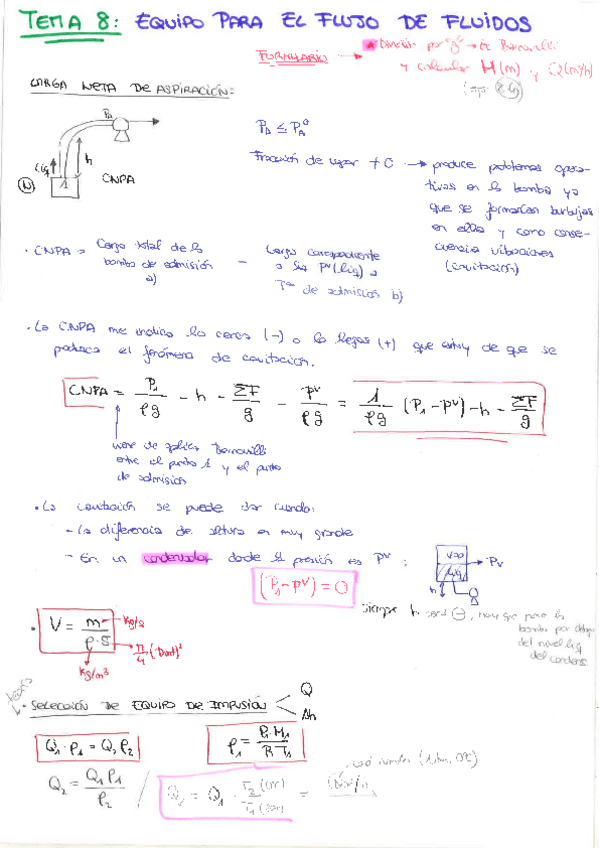 TEMA 8: EQUIPO PARA EL FLUJO DE FLUIDOS
FORMULARIO → División por "g" → Ec Bernoulli
y calcular H(m) y Q(m³/h)
CARGA NETA DE ASPIRACIÓN:
PA
Líq
h
CNPA
PA ≤ PA⁰
Fracción de vapor ↑C → produce problemas opera-
tivos en la bomba ya
que se formarían burbujas
en ella y como conse-
cuencia vibraciones
(cavitación)
· CNPA = Carga total de la bomba de admisión a) − Carga correspondiente a su Pv(líq) a Tª de admisión b)
· La CNPA me indica lo cerca (−) o lo lejos (+) que estoy de que se
produzca el fenómeno de cavitación.
CNPA = P₁/ρg − h − ΣF/g − Pv/ρg = 1/ρg (P₁ − Pv) − h − ΣF/g
viene de aplicar Bernoulli
entre el punto 1 y el punto
de admisión
· La cavitación se puede dar cuando:
– La diferencia de altura es muy grande
– En un condensador donde la presión es Pv:
(P₁ − Pv) = 0
Líq
→ Pv
h
siempre h será ⊖, hay que poner la
bomba por debajo
del nivel líq
del condens.
· V = m/ρ·S
kg/s
π/4 (Dint)²
kg/m³
· SELECCIÓN DE EQUIPO DE IMPULSIÓN < Q
Δh
Q₁·ρ₁ = Q₂ρ₂
ρ₁ = P₁·M₁/R T₁
Q₂ = Q₁ρ₁/ρ₂ / Q₂ = Q₁ · T₂(K)/T₁(K) =
(1 atm, 0ºC)